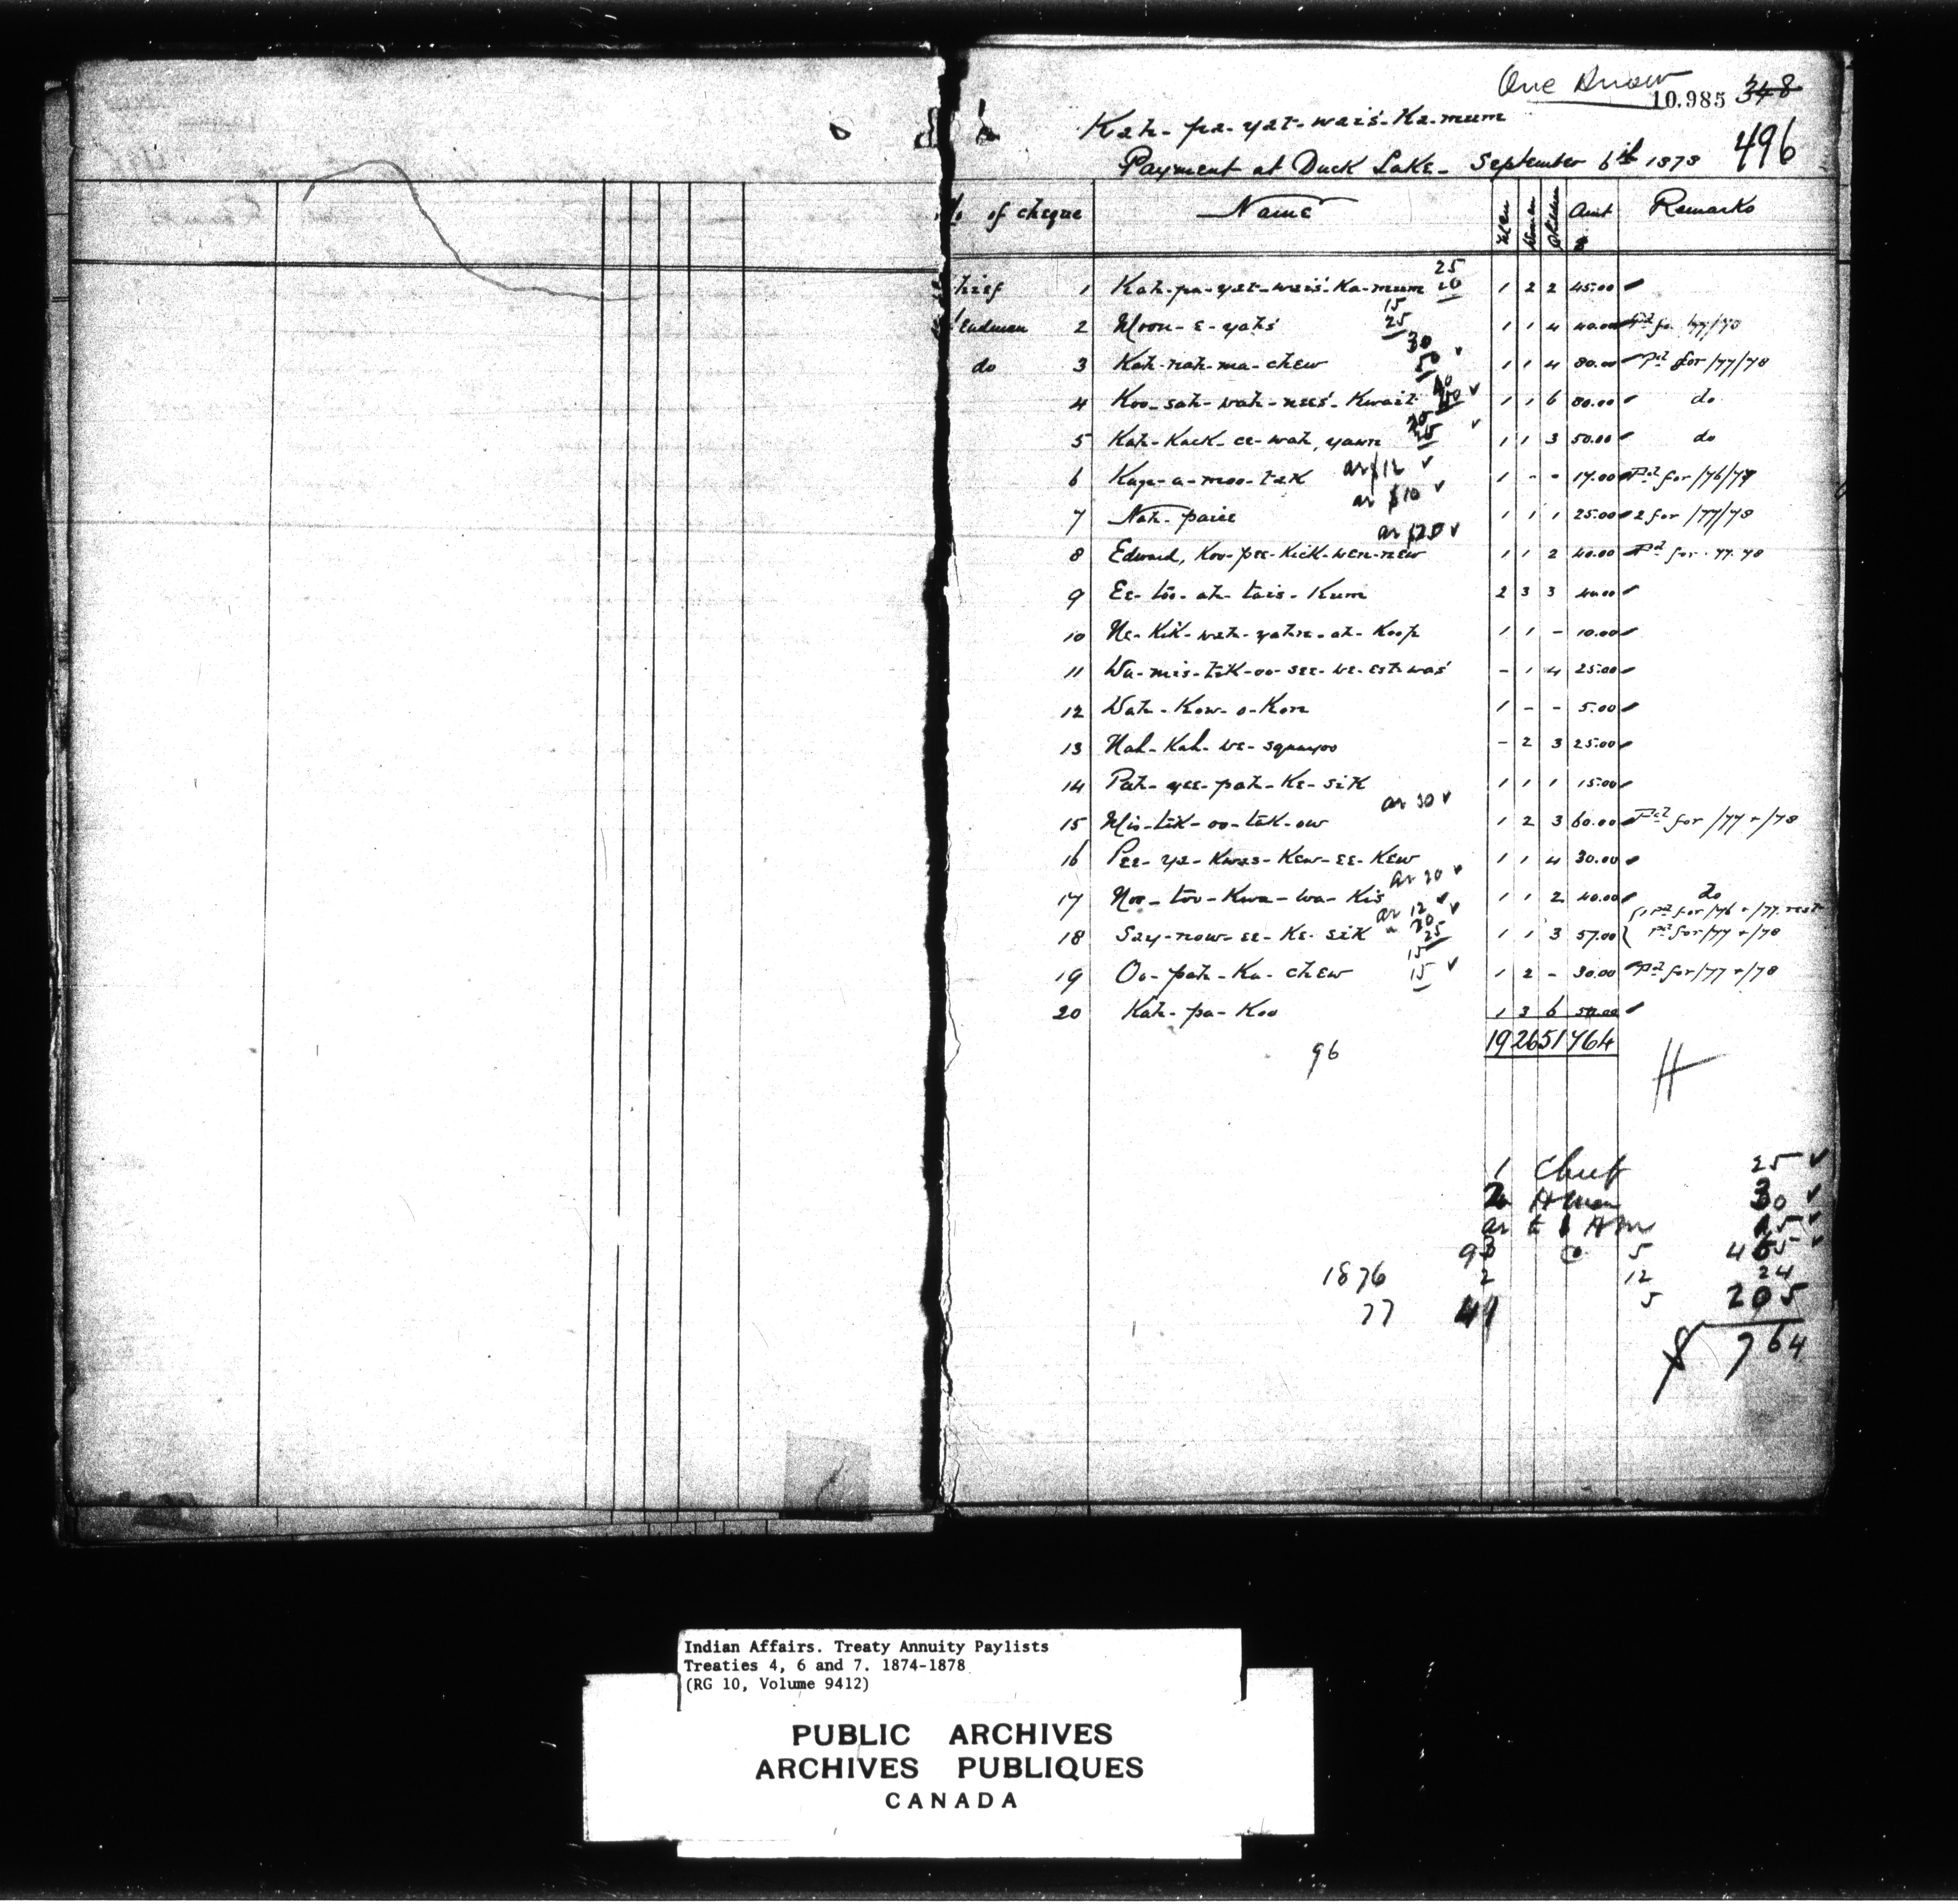 One Arrow
10.985 348
Kah-pa-yat-wais-Ka-mum
496
Payment at Duck Lake - September 6th 1878
No of cheque Name Men Women Children Amt $ Remarks
25
Chief 1 Kah-pa-yat-wais-Ka-mum 20 1 2 2 45.00
15
Headman 2 Moon-e-yahs 25 1 1 4 40.00 Pd for /77/78
30
do 3 Kah-nah-ma-chew 50 1 1 4 80.00 Pd for /77/78
40
4 Koo-sah-wah-nees-Kwait 40 1 1 6 80.00 do
5 Kah-Kack-ee-wah, yawn 25 1 1 3 50.00 do
ar $12
6 Kay-a-moo-tak 1 - - 17.00 Pd for /76/78
ar $10
7 Nah-paice 1 1 1 25.00 2 for /77/78
ar $20
8 Edward, Koo-pee-Kick-wen-new 1 1 2 40.00 Pd for 77.78
9 Ee-too-ah-tais-Kum 2 3 3 40.00
10 Ne-Kik-wah-yahn-ah-Koop 1 1 - 10.00
11 Wa-mis-tik-oo-see-we-est-was - 1 4 25.00
12 Wah-Kow-o-Kon 1 - - 5.00
13 Nah-Kah-we-squayoo - 2 3 25.00
14 Pah-yee-pah-Ke-sik 1 1 1 15.00
ar 30
15 Mis-tik-oo-tak-ow 1 2 3 60.00 Pd for /77 + /78
16 Pee-ya-Kwas-Kew-ee-Kew 1 1 4 30.00
ar 20
17 Noo-too-Kwa-wa-Kis 1 1 2 40.00 do
ar 12 1 Pd for /76 + /77. rest
" 20
18 Say-now-ee-Ke-sik 25 1 1 3 57.00 Pd for /77 + /78
15
19 Oo-pah-Ka-chew 15 1 2 - 30.00 Pd for /77 + /78
20 Kah-pa-Koo 1 3 6 50.00
19 26 51 764
96
1 Chief 25
2 H Men 30
ar to 1 HM 15
93 @ 5 465
1876 2 12 24
77 41 5 205
$ 764
Indian Affairs. Treaty Annuity Paylists
Treaties 4, 6 and 7. 1874-1878
(RG 10, Volume 9412)
PUBLIC ARCHIVES
ARCHIVES PUBLIQUES
CANADA